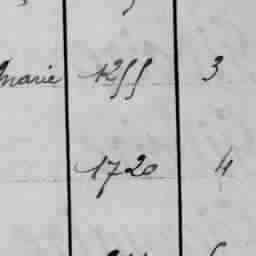 marie 1255 3
1720 4